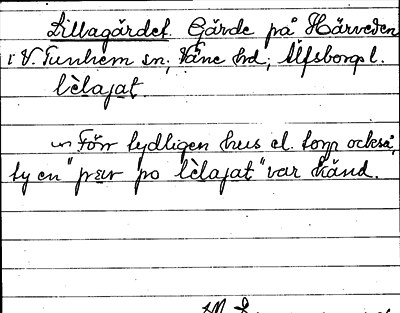 Lillagärdet. Gärde på Härveden
i V. Tunhem sn; Väne hd; Älfsborgs l.
lèlajat
Förr tydligen hus el. torp också,
ty en "pær po lèlajat" var känd.